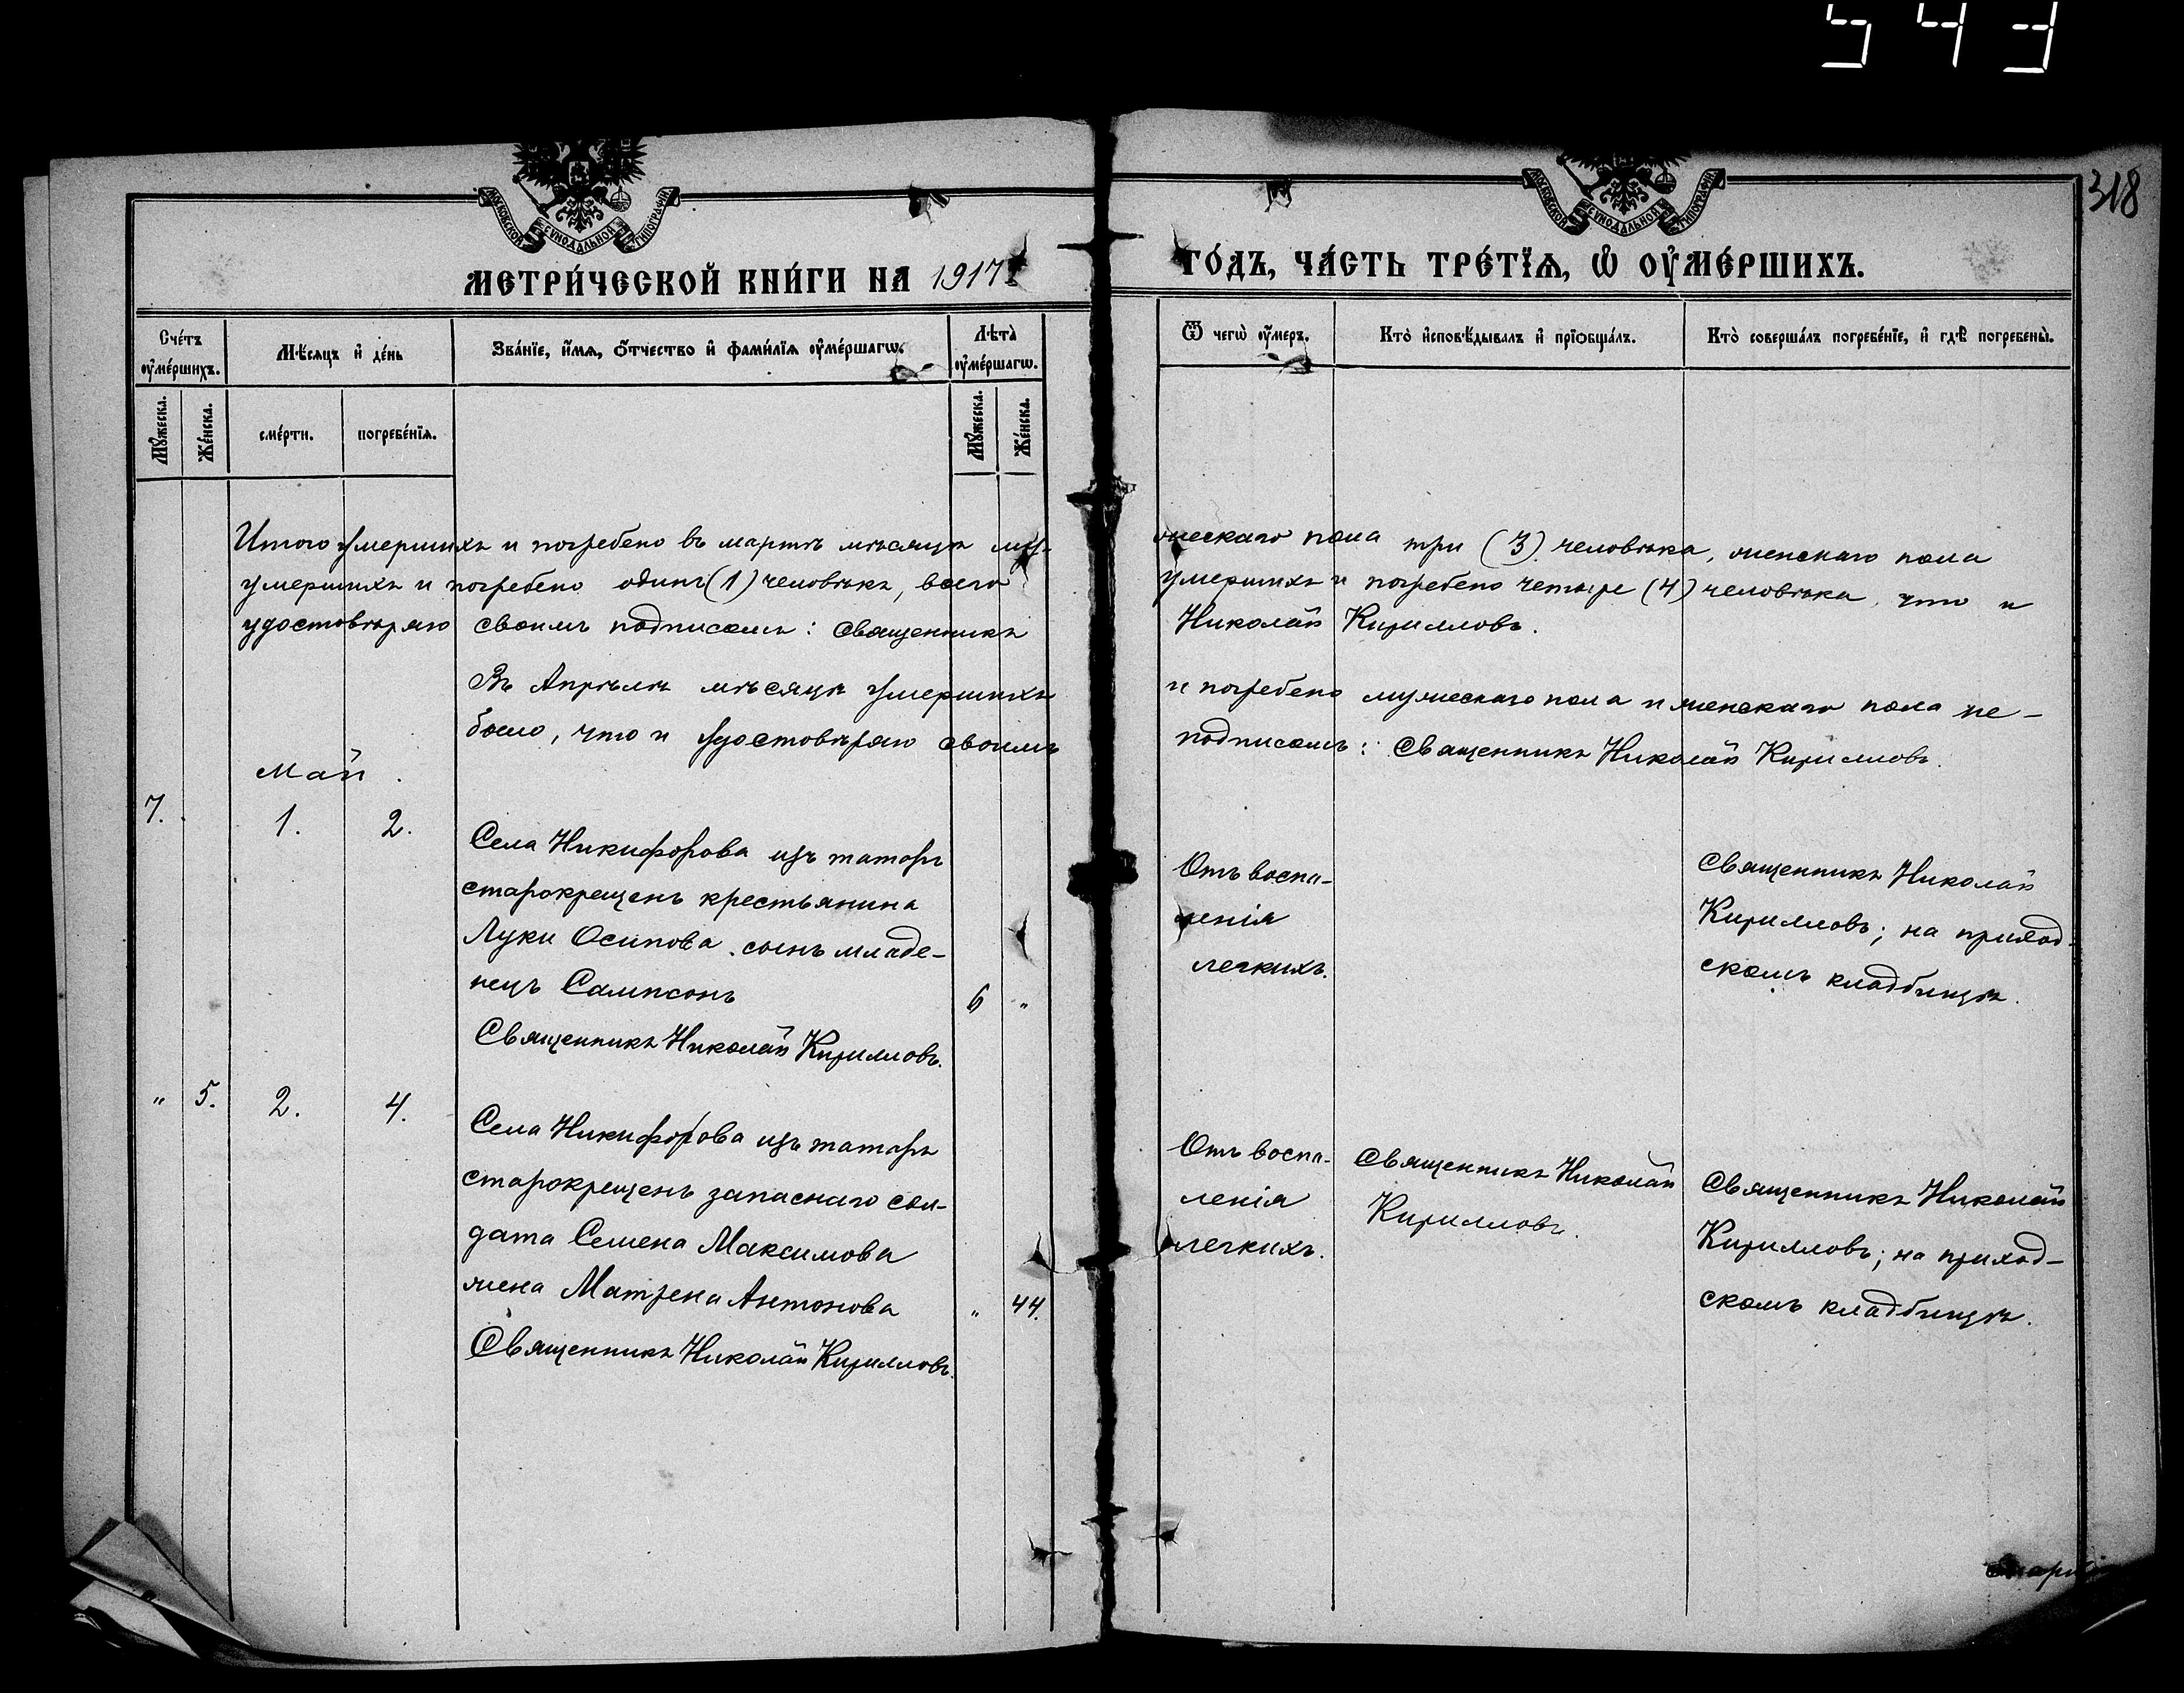 543
318
МОСКОВСКОЙ СУНОДАЛЬНОЙ ТИПОГРАФІИ
МОСКОВСКОЙ СУНОДАЛЬНОЙ ТИПОГРАФІИ
МЕТРИ́ЧЕСКОЙ КНИ́ГИ НА 1917 ГО́ДЪ, ЧА́СТЬ ТРЕ́ТЇѦ, Ѡ҆ ОУ҆МЕ́РШИХЪ.
Сче́тъ оу҆ме́ршихъ.
Мѣ́сяцъ и҆ де́нь
Зва́нїе, и҆́мя, ѻ҆́тчество и҆ фами́лїя оу҆ме́ршагѡ.
Лѣта̀ оу҆ме́ршагѡ.
Ѿ чегѡ̀ оу҆́меръ.
Кто̀ и҆сповѣ́дывалъ и҆ прїѻбща́лъ.
Кто̀ соверша́лъ погребе́нїе, и҆ гдѣ̀ погребены̀.
Мꙋ́жеска.
Же́нска.
сме́рти.
погребе́нїя.
Мꙋ́жеска.
Же́нска.
Итого умершихъ и погребено въ мартѣ мѣсяцѣ му-
жескаго пола три (3) человѣка, женскаго пола
умершихъ и погребено одинъ (1) человѣкъ, всего
умершихъ и погребено четыре (4) человѣка, что и
удостовѣряю своимъ подписомъ: Священникъ
Николай Кирилловъ.
Въ Апрѣлѣ мѣсяцѣ умершихъ
и погребено мужескаго пола и женскаго пола не-
было, что и удостовѣряю своимъ
подписомъ: Священникъ Николай Кирилловъ.
Май.
7. 1. 2.
Села Никифорова изъ татаръ
старокрещенъ крестьянина
Луки Осипова сынъ младе-
нецъ Сампсонъ 6 "
Священникъ Николай Кирилловъ.
Отъ воспа-
ленія
легкихъ.
Священникъ Николай
Кирилловъ; на приход-
скомъ кладбищѣ.
" 5. 2. 4.
Села Никифорова изъ татаръ
старокрещенъ запаснаго сол-
дата Семена Максимова
жена Матрена Антонова " 44.
Священникъ Николай Кирилловъ.
Отъ воспа-
ленія
легкихъ.
Священникъ Николай
Кирилловъ.
Священникъ Николай
Кирилловъ; на приход-
скомъ кладбищѣ.